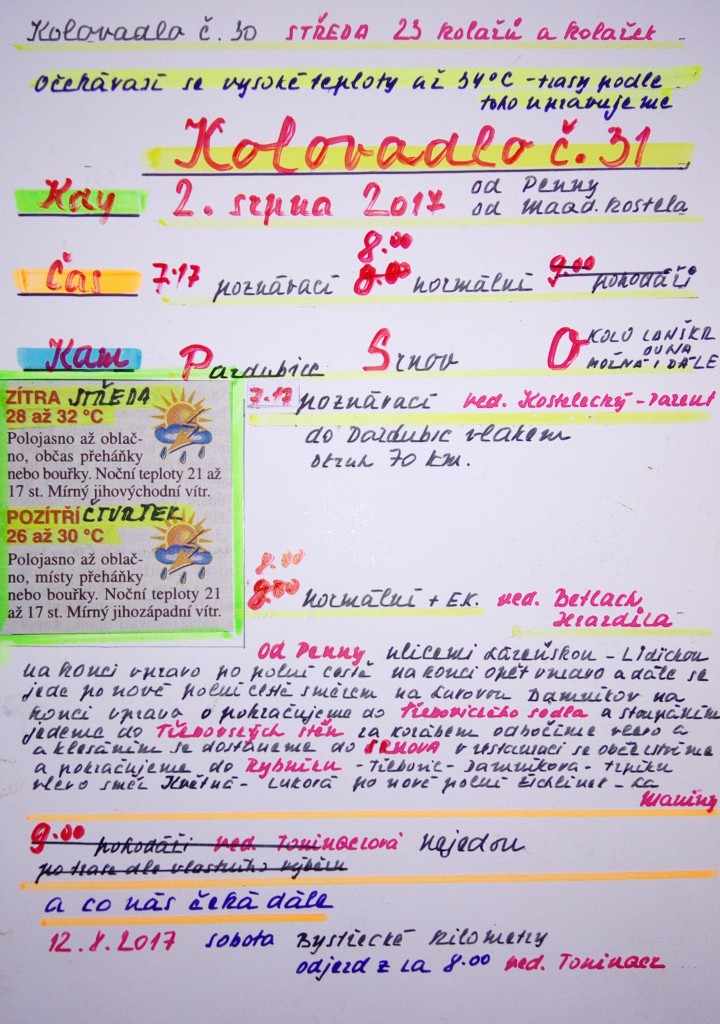 Kolovadlo č. 30 STŘEDA 23 kolařů a kolařek
Očekávají se vysoké teploty až 34°C - trasy podle
toho upravujeme
Kolovadlo č. 31
Kdy 2. srpna 2017 od Penny
od Maad. kostela
8.00
Čas 7.17 poznávací 8.00 normální 9.00 pohodáři
Kam Pardubice Srnov O KOLO LANŠKR
OUNA
MOŽNÁ I DÁLE
ZÍTRA STŘEDA
28 až 32 °C
Polojasno až oblač-
no, občas přeháňky
nebo bouřky. Noční teploty 21 až
17 st. Mírný jihovýchodní vítr.
POZÍTŘÍ ČTVRTEK
26 až 30 °C
Polojasno až oblač-
no, místy přeháňky
nebo bouřky. Noční teploty 21
až 17 st. Mírný jihozápadní vítr.
7.17 poznávací ved. Kostelecký - Parent
do Pardubic vlakem
okruh 70 km.
8.00
9.00 normální + EK. ved. Betlach
Hrazdila
Od Penny ulicemi Lázeňskou - Lidickou
na konci vpravo po polní cestě na konci opět vpravo a dále se
jede po nové polní cestě směrem na Lukovou Damníkov na
konci vpravo a pokračujeme do Třebovického sedla a stoupáním
jedeme do Třebovských stěn za korábem odbočíme vlevo a
a klesáním se dostaneme do SRNOVA v restauraci se občerstvíme
a pokračujeme do Rybníku - Třebovic - Damníkova - Trpíku
vlevo směr Květná - Luková po nové polní Eichlinek - La
Maniny
9.00 pohodáři ved. Toninaciová Nejedou
po trase dle vlastního výběru
a co nás čeká dále
12.8.2017 sobota Bystřecké kilometry
odjezd z La 8.00 ved. Toninacz